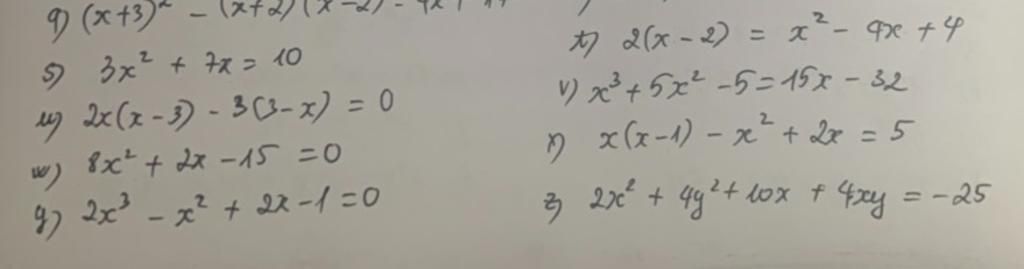 q) (x+3)² - (x+2)(x-2) - 4x
s) 3x² + 7x = 10
u) 2x(x-3) - 3(3-x) = 0
w) 8x² + 2x - 15 = 0
y) 2x³ - x² + 2x - 1 = 0
t) 2(x-2) = x² - 4x + 4
v) x³ + 5x² - 5 = 15x - 32
x) x(x-1) - x² + 2x = 5
z) 2x² + 4y² + 10x + 4xy = -25